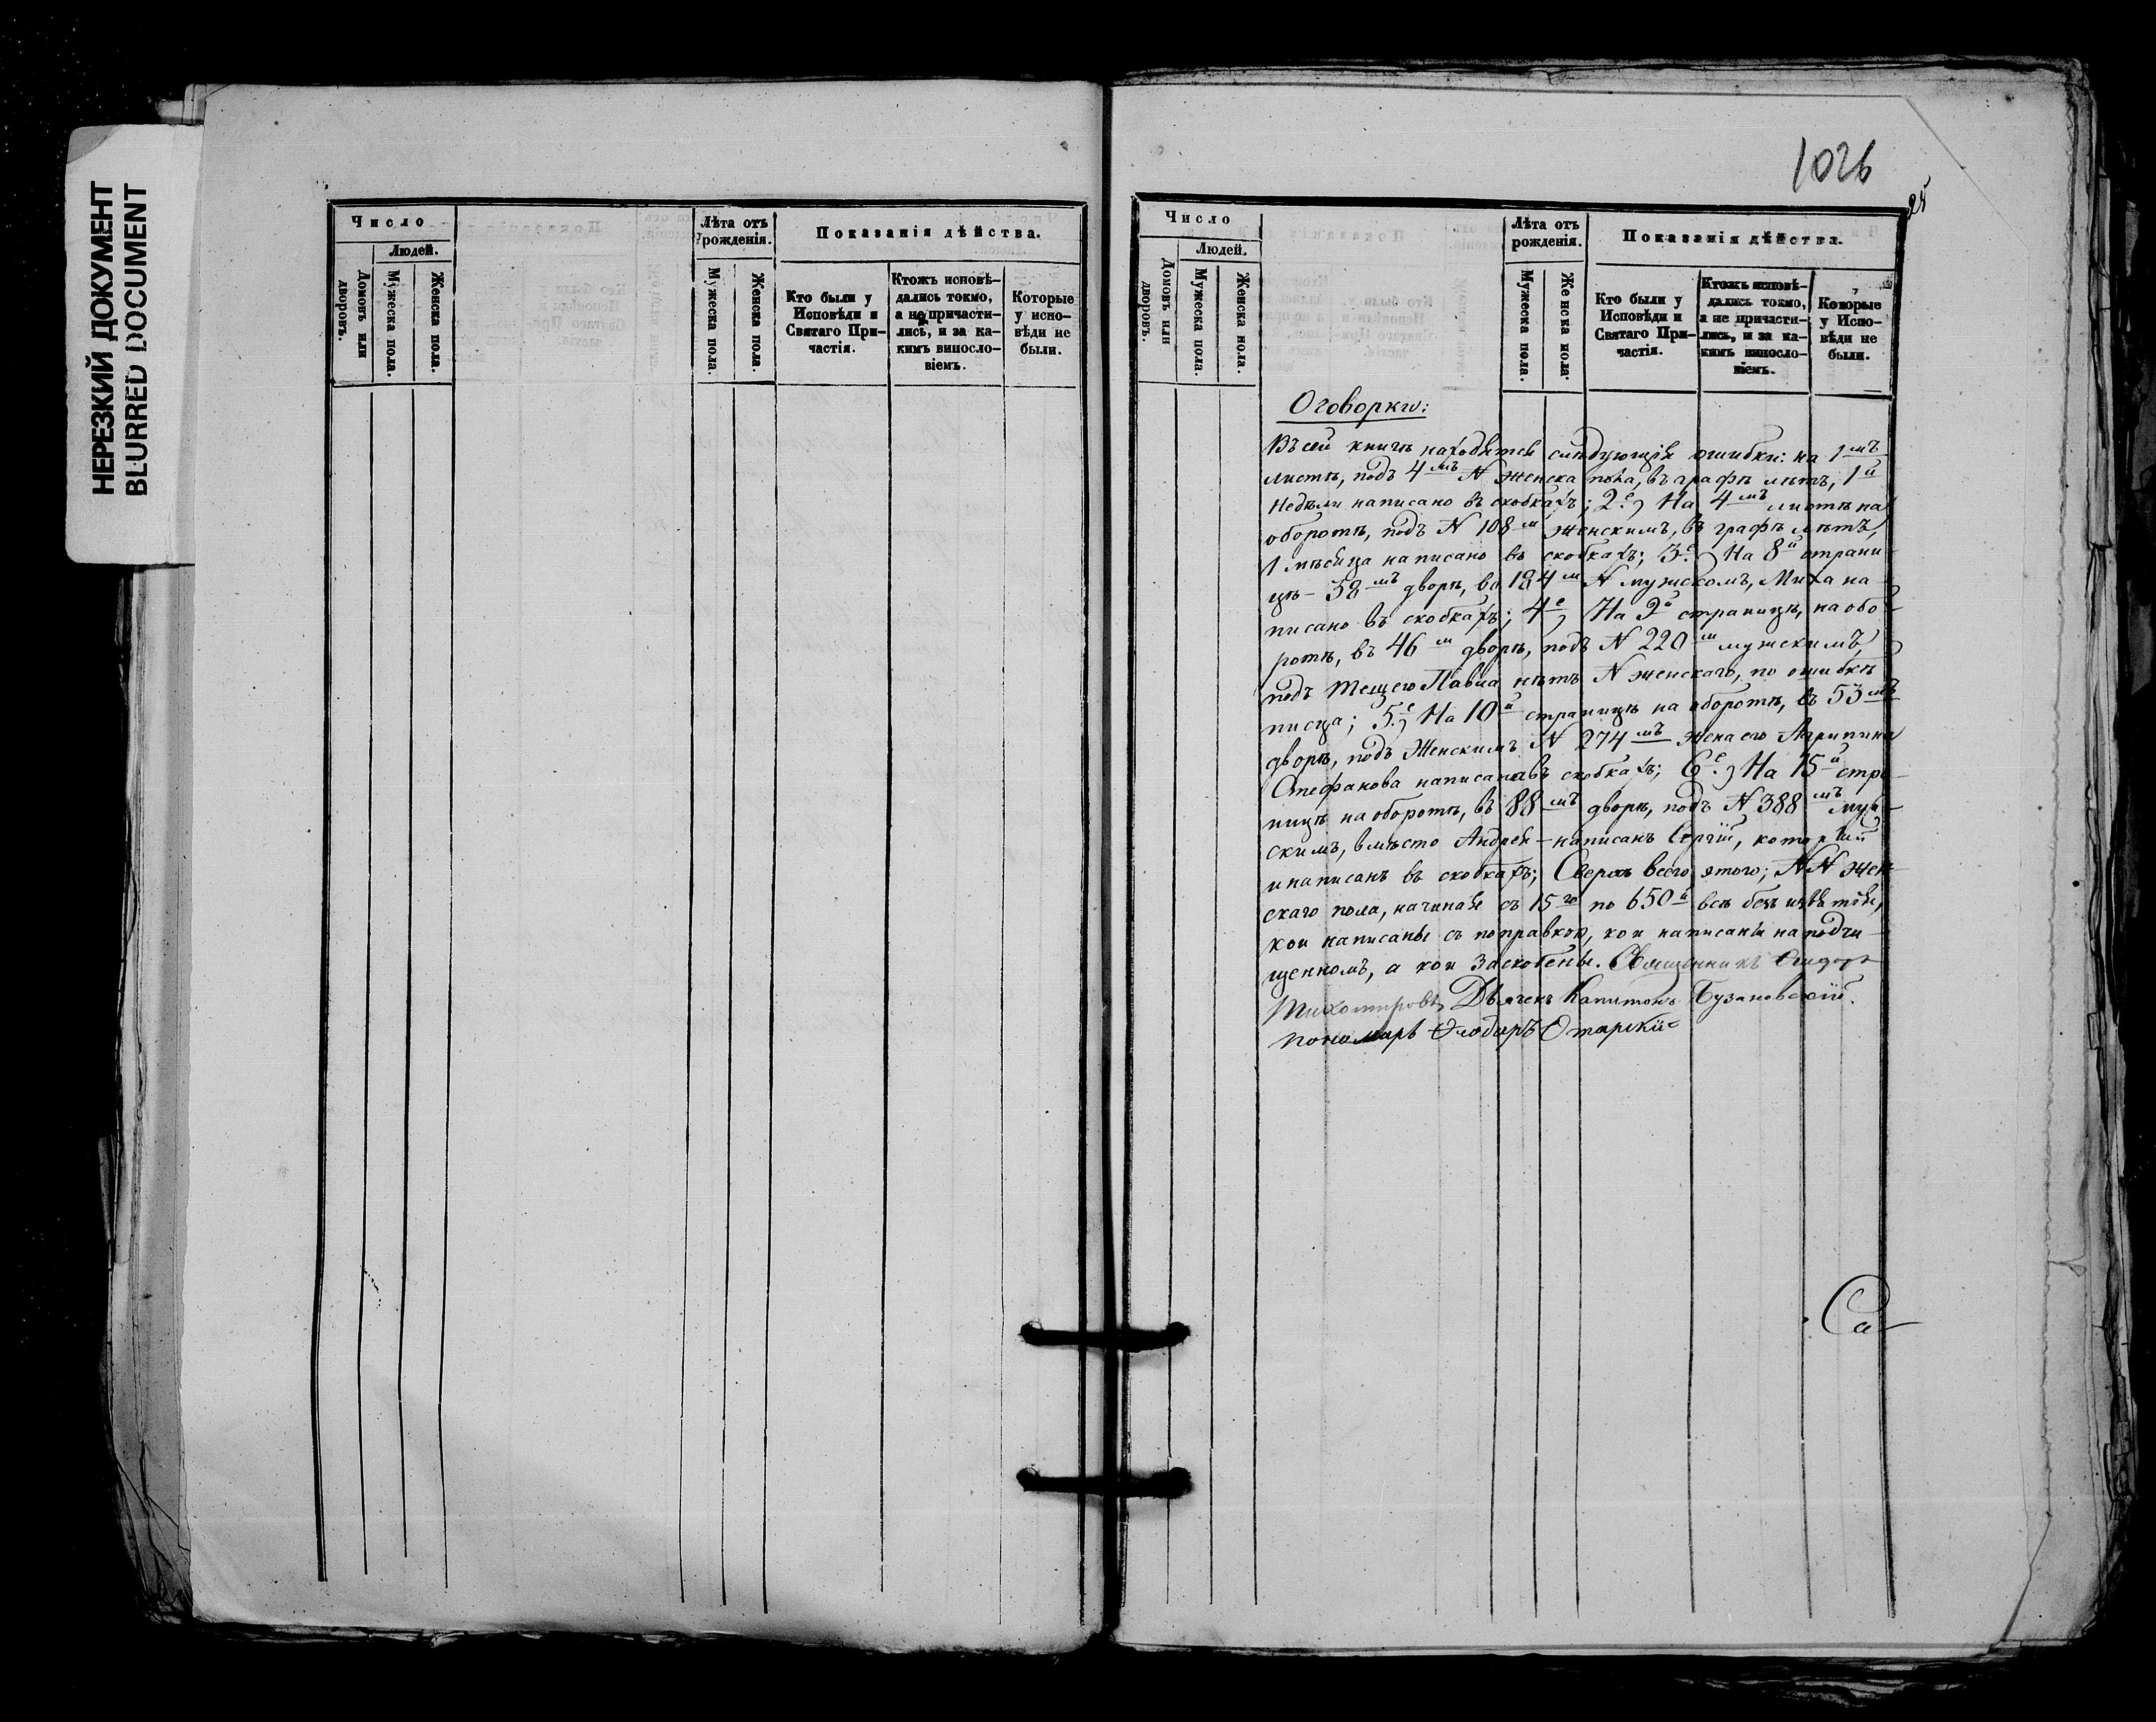 НЕРЕЗКИЙ ДОКУМЕНТ
BLURRED DOCUMENT
Число
Людей.
Домовъ или дворовъ.
Мужеска пола.
Женска пола.
Лѣта отъ рожденія.
Мужеска пола.
Женска пола.
Показанія дѣйства.
Кто были у Исповѣди и Святаго При-частія.
Ктожъ исповѣ-дались токмо, а не причасти-лись, и за ка-кимъ виносло-віемъ.
Которые у испо-вѣди не были.
1026
25
Число
Людей.
Домовъ или дворовъ.
Мужеска пола.
Женска пола.
Лѣта отъ рожденія.
Мужеска пола.
Женска пола.
Показанія дѣйства.
Кто были у Исповѣди и Святаго При-частія.
Ктожъ исповѣ-дались токмо, а не причасти-лись, и за ка-кимъ виносло-віемъ.
Которые у Испо-вѣди не были.
Оговорки:
Въ сей книгѣ находятся слѣдующія ошибки: на 1мъ
листѣ, подъ 4мъ N женска пола, въ графѣ лѣтъ, 1й
недѣли написано въ скобкахъ; 2е) На 4мъ листѣ на
оборотѣ, подъ N 108м женскимъ, въ графѣ лѣтъ,
1 мѣсяца написано въ скобкахъ; 3е) На 8й страни-
цѣ - 38мъ дворѣ, во 184м N мужскомъ, Миха на-
писано въ скобкахъ; 4е) На 9й страницѣ, на обо-
ротѣ, въ 46м дворѣ, подъ N 220м мужскимъ,
подъ тещею Павла нѣтъ N женскаго, по ошибкѣ
писца; 5е) На 10й страницѣ на оборотѣ, въ 53мъ
дворѣ, подъ Женскимъ N 274мъ жена его Агрипина
Стефанова написана въ скобкахъ; 6е) На 15й стра-
ницѣ на оборотѣ, въ 88мъ дворѣ, подъ N 388мъ муж-
скимъ, вмѣсто Андрея - написанъ Сергій, который
и написанъ въ скобкахъ; Сверхъ всего этого; NN жен-
скаго пола, начиная съ 15го по 650й всѣ безъ изъятія,
кои написаны съ поправкою, кои написаны на подчи-
щенномъ, а кои заскоблены. Священникъ
Тихомировъ Дьячекъ Капитонъ Бузановскій.
пономарь Ѳеодоръ Отарскій
Са-